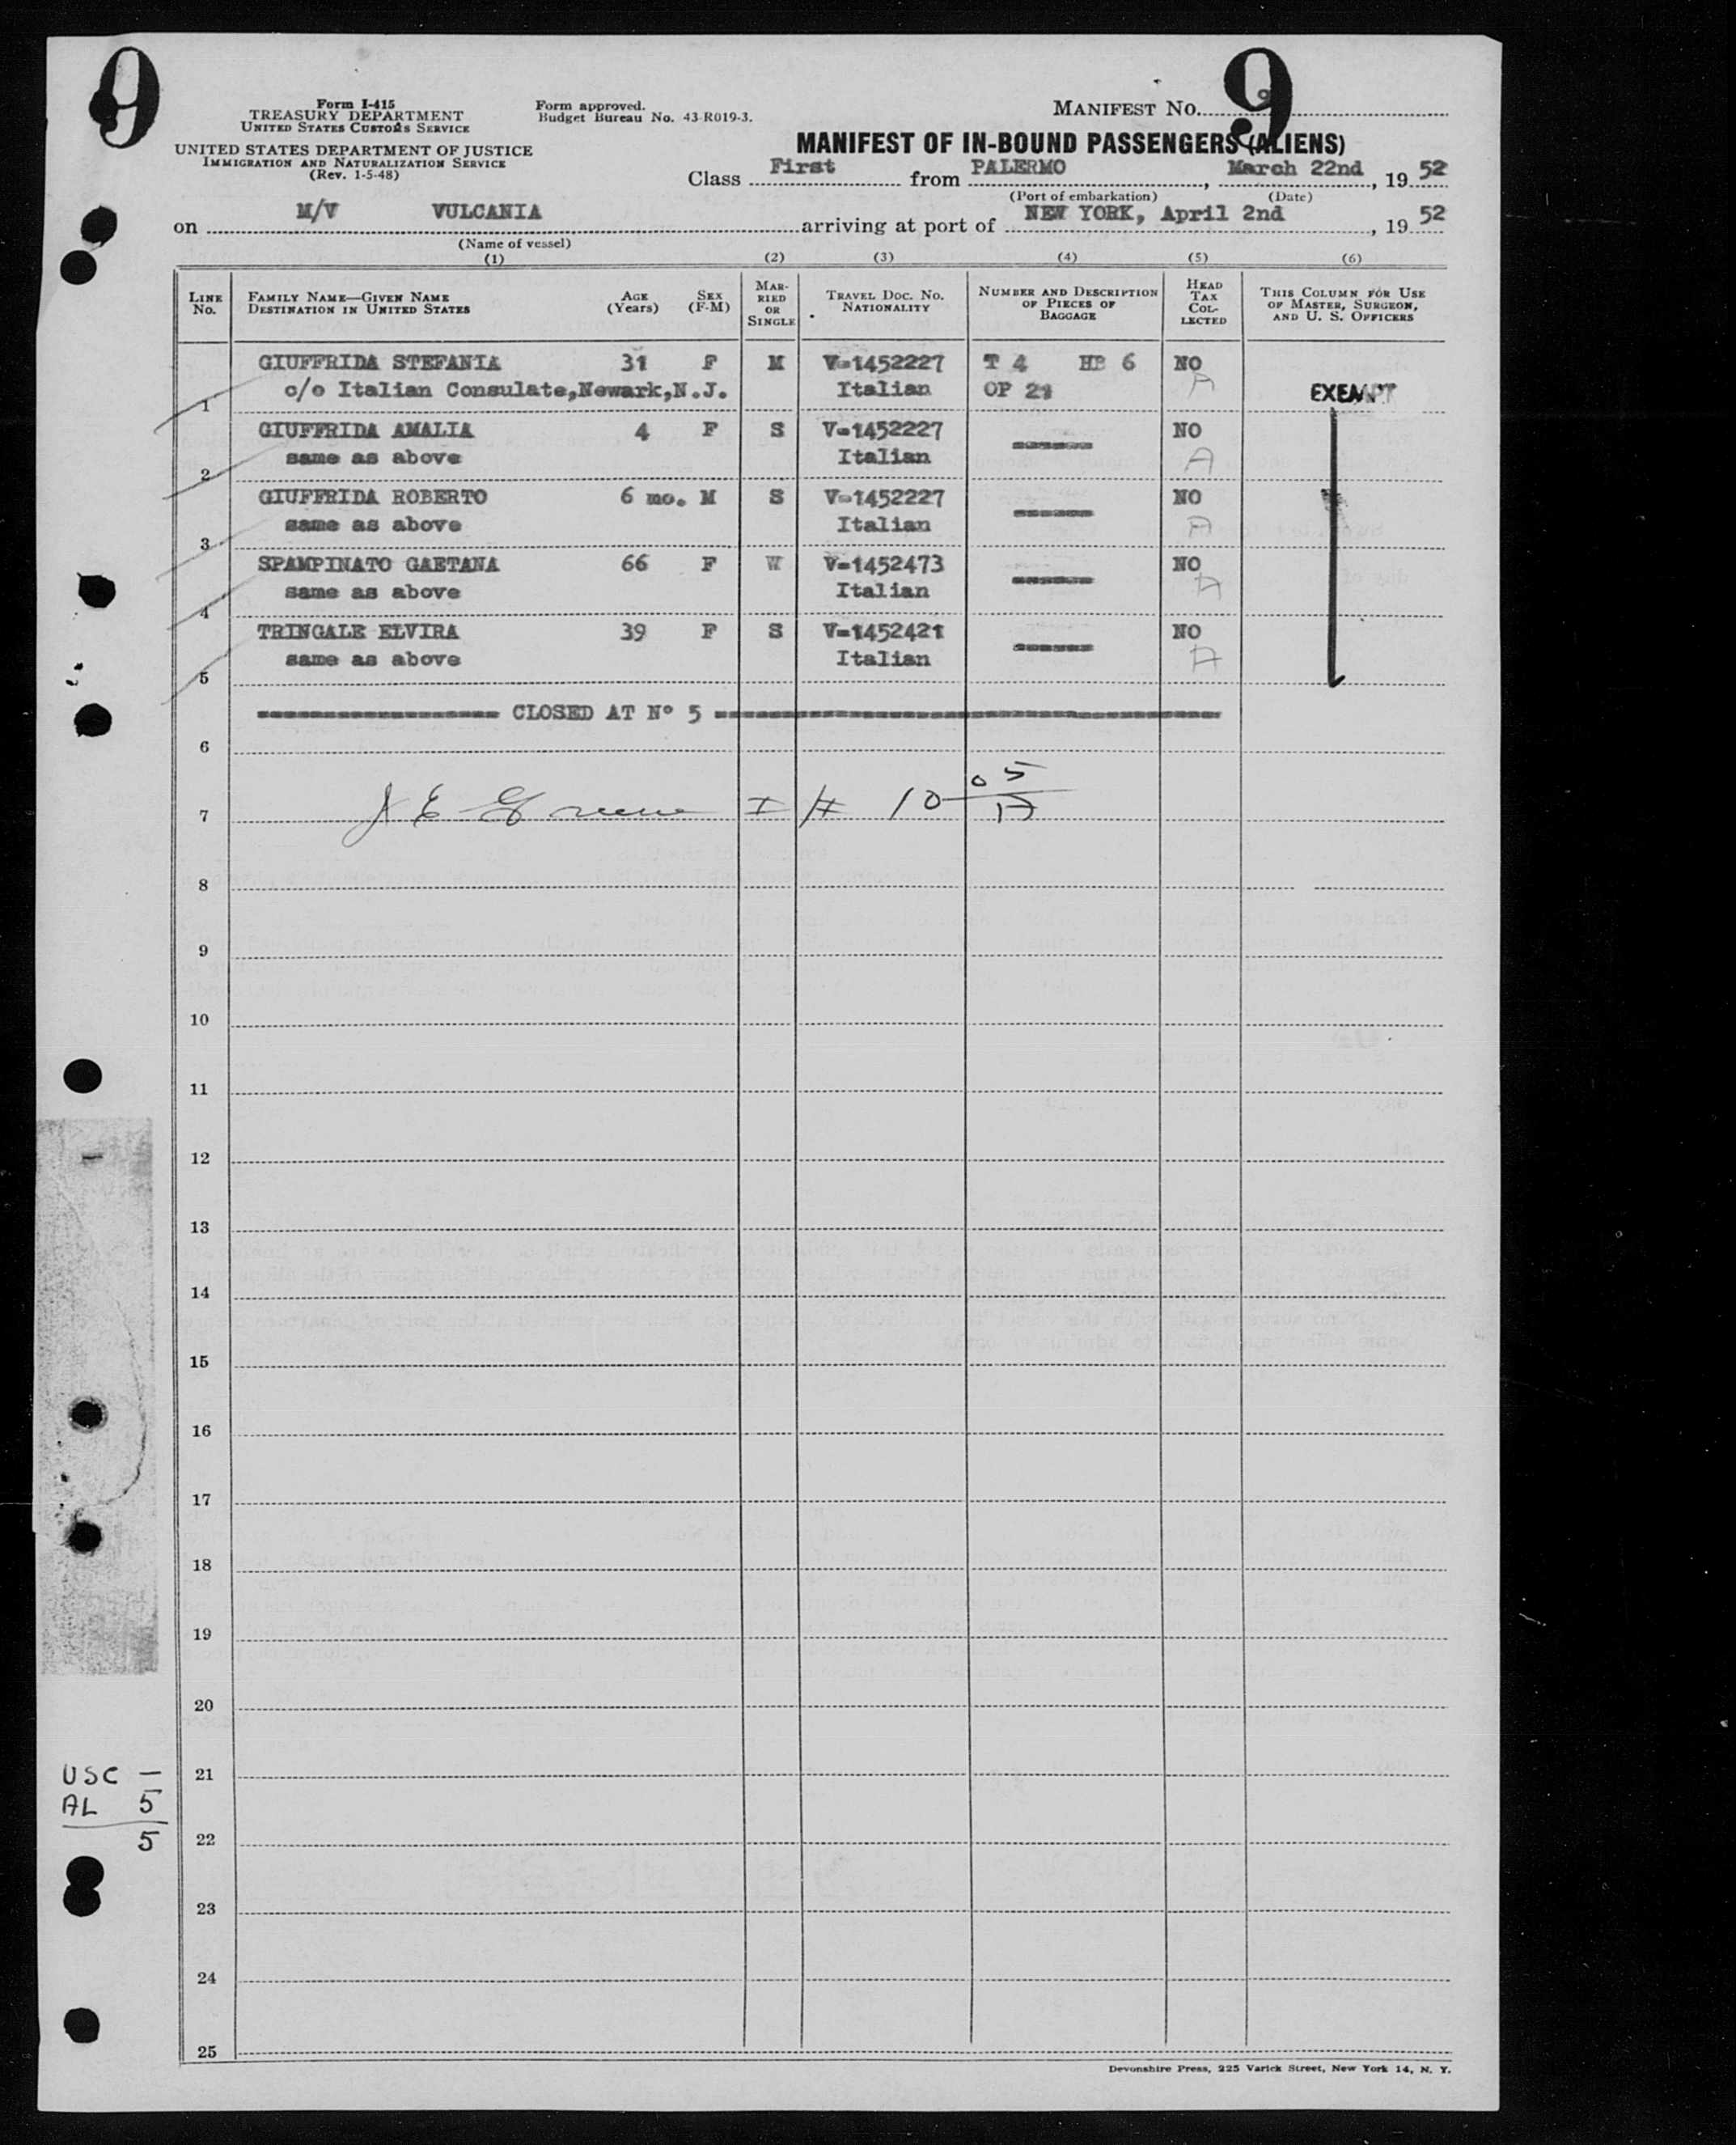 9
9
Form I-415
TREASURY DEPARTMENT
UNITED STATES CUSTOMS SERVICE
UNITED STATES DEPARTMENT OF JUSTICE
IMMIGRATION AND NATURALIZATION SERVICE
(Rev. 1-5-48)
Form approved.
Budget Bureau No. 43-R019-3.
MANIFEST NO. 9
MANIFEST OF IN-BOUND PASSENGERS (ALIENS)
Class First from PALERMO, March 22nd, 19 52
(Port of embarkation) (Date)
on M/V VULCANIA arriving at port of NEW YORK, April 2nd, 19 52
(Name of vessel)
(1) (2) (3) (4) (5) (6)
LINE NO. FAMILY NAME—GIVEN NAME DESTINATION IN UNITED STATES AGE (YEARS) SEX (F-M) MARRIED OR SINGLE TRAVEL DOC. NO. NATIONALITY NUMBER AND DESCRIPTION OF PIECES OF BAGGAGE HEAD TAX COLLECTED THIS COLUMN FOR USE OF MASTER, SURGEON, AND U. S. OFFICERS
GIUFFRIDA STEFANIA 31 F M V-1452227 T 4 HB 6 NO
1 c/o Italian Consulate, Newark, N.J. Italian OP 21 A EXEMPT
GIUFFRIDA AMALIA 4 F S V-1452227 NO
2 same as above Italian A
GIUFFRIDA ROBERTO 6 mo. M S V-1452227 NO
3 same as above Italian A
SPAMPINATO GAETANA 66 F W V-1452473 NO
4 same as above Italian A
TRINGALE ELVIRA 39 F S V-1452421 NO
5 same as above Italian A
CLOSED AT Nº 5
6
7
8
9
10
11
12
13
14
15
16
17
18
19
20
USC —
21
AL 5
5
22
23
24
25
Devonshire Press, 225 Varick Street, New York 14, N. Y.